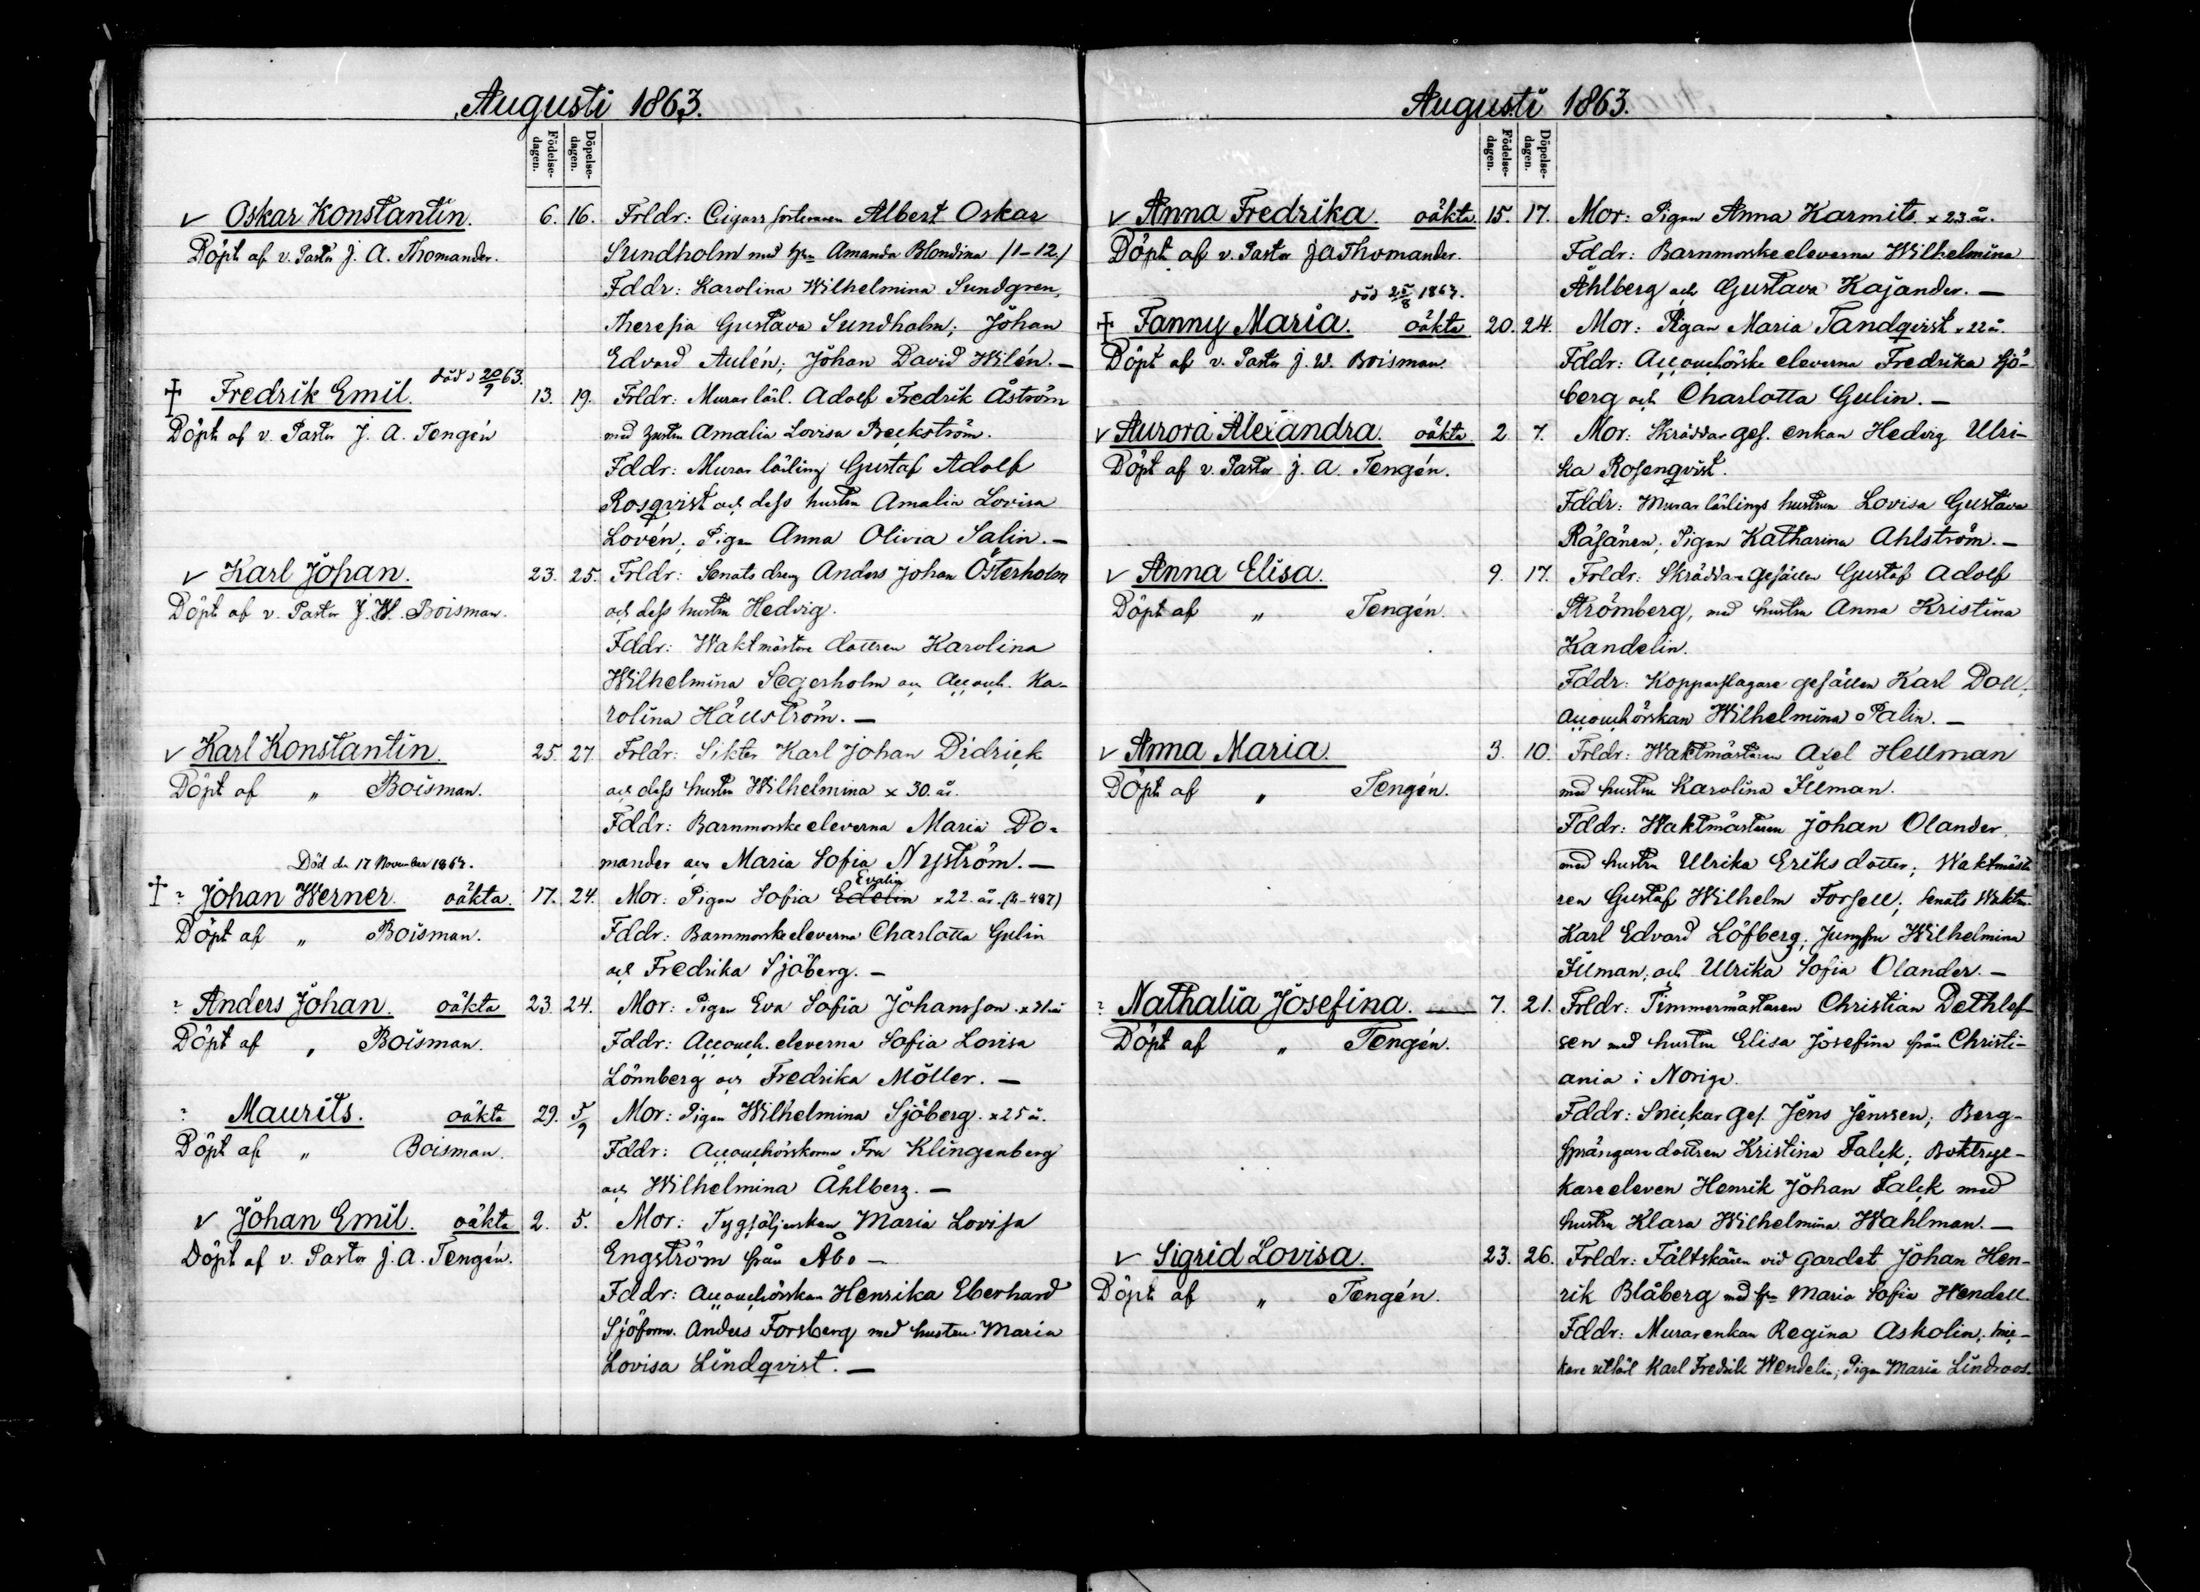 Augusti 1863.
Födelse-dagen. Döpelse-dagen.
✓ Oskar Konstantin. 6. 16. Frldr: Cigarr sorteraren Albert Oskar
Döpt af v. Pastor J. A. Thomander. Sundholm med hn Amanda Blondina /1-12./
Fddr: Karolina Wilhelmina Sundgren,
Theresia Gustava Sundholm; Johan
Edvard Aulén; Johan David Wilén. —
död d 20/9 63.
† Fredrik Emil. 13. 19. Frldr: Murar lärl. Adolf Fredrik Åström
Döpt af v. Pastor J. A. Tengén med hustru Amalia Lovisa Beckström.
Fddr: Murar lärling Gustaf Adolf
Rosqvist och dess hustru Amalia Lovisa
Lovén; Pigan Anna Olivia Salin. —
✓ Karl Johan. 23. 25. Frldr: Senats dreng Anders Johan Österholm
Döpt af v. Pastor J. W. Boisman. och dess hustru Hedvig.
Fddr: Waktmästare dottren Karolina
Wilhelmina Segerholm och Accouch. Ka-
rolina Hällström. —
✓ Karl Konstantin. 25. 27. Frldr: Sikter Karl Johan Didrick
Döpt af " Boisman. och dess hustru Wilhelmina x 30. år.
Fddr: Barnmorske eleverna Maria Do-
mander och Maria Sofia Nyström. —
Död den 17 November 1863.
Evalin
† Johan Werner. oäkta. 17. 24. Mor: Pigan Sofia Edelin x 22. år. (2-487)
Döpt af " Boisman. Fddr: Barnmorske eleverna Charlotta Gulin
och Fredrika Sjöberg. —
Anders Johan. oäkta 23. 24. Mor: Pigan Eva Sofia Johansson x
Döpt af " Boisman. Fddr: Accouch. eleverna Sofia Lovisa
Lönnberg och Fredrika Möller. —
Maurits. oäkta 29. 5/9 Mor: Pigan Wilhelmina Sjöberg. x 25 å.
Döpt af " Boisman. Fddr: Accouchörskorna Fru Klingenberg
och Wilhelmina Åhlberg. —
✓ Johan Emil. oäkta 2. 5. Mor: Tygsöljerskan Maria Lovisa
Döpt af v. Pastor J. A. Tengén. Engström från Åbo —
Fddr: Accouchörskan Henrika Eberhard
Sjöform. Anders Forsberg med hustru Maria
Lovisa Lindqvist. —
Augusti 1863.
Födelse-dagen. Döpelse-dagen.
✓ Anna Fredrika. oäkta. 15. 17. Mor: Pigan Anna Karmits. x 23. år.
Döpt af v. Pastor J A Thomander. Fddr: Barnmorske eleverna Wilhelmina
Åhlberg och Gustava Kajander. —
död 25/8 1863.
† Fanny Maria. oäkta 20. 24. Mor: Pigan Maria Tandqvist x 22 å.
Döpt af v. Pastor J. W. Boisman. Fddr: Accouchörske eleverna Fredrika Sjö-
berg och Charlotta Gulin. —
✓ Aurora Alexandra. oäkta. 2. 7. Mor: Skräddar ges. enkan Hedvig Ulri-
Döpt af v. Pastor J. A. Tengén. ka Rosenqvist.
Fddr: Murar lärlings hustrun Lovisa Gustava
Räsänen; Pigan Katharina Ahlström. —
✓ Anna Elisa. 9. 17. Frldr: Skräddare gesällen Gustaf Adolf
Döpt af " Tengén. Strömberg, med hustru Anna Kristina
Kandelin.
Fddr: Kopparslagare gesällen Karl Doll,
Accouchörskan Wilhelmina Palin. —
✓ Anna Maria. 3. 10. Frldr: Waktmästaren Axel Hellman
Döpt af " Tengén. med hustru Karolina Ilman.
Fddr: Waktmästaren Johan Olander.
med hustru Ulrika Eriks dotter; Waktmästa
ren Gustaf Wilhelm Forsell; Senats Waktm.
Karl Edvard Löfberg; Jungfru Wilhelmina
Ilman; och Ulrika Sofia Olander. —
Nathalia Josefina. — 7. 21. Frldr: Timmermästaren Christian Dethlef-
Döpt af " Tengén. sen med hustru Elisa Josefina från Christi-
ania i Norige.
Fddr: Snickar ges. Jens Jenssen; Berg-
sprängare dottren Kristina Falck; Boktryc-
kare eleven Henrik Johan Falck med
hustru Klara Wilhelmina Wahlman. —
✓ Sigrid Lovisa. 23. 26. Frldr: Fältskären vid Gardet Johan Hen-
Döpt af " Tengén. rik Blåberg med hn Maria Sofia Wendell
Fddr: Murar enkan Regina Askolin; Snic-
kare utlärl Karl Fredrik Wendelin; Pigan Maria Lindroos.